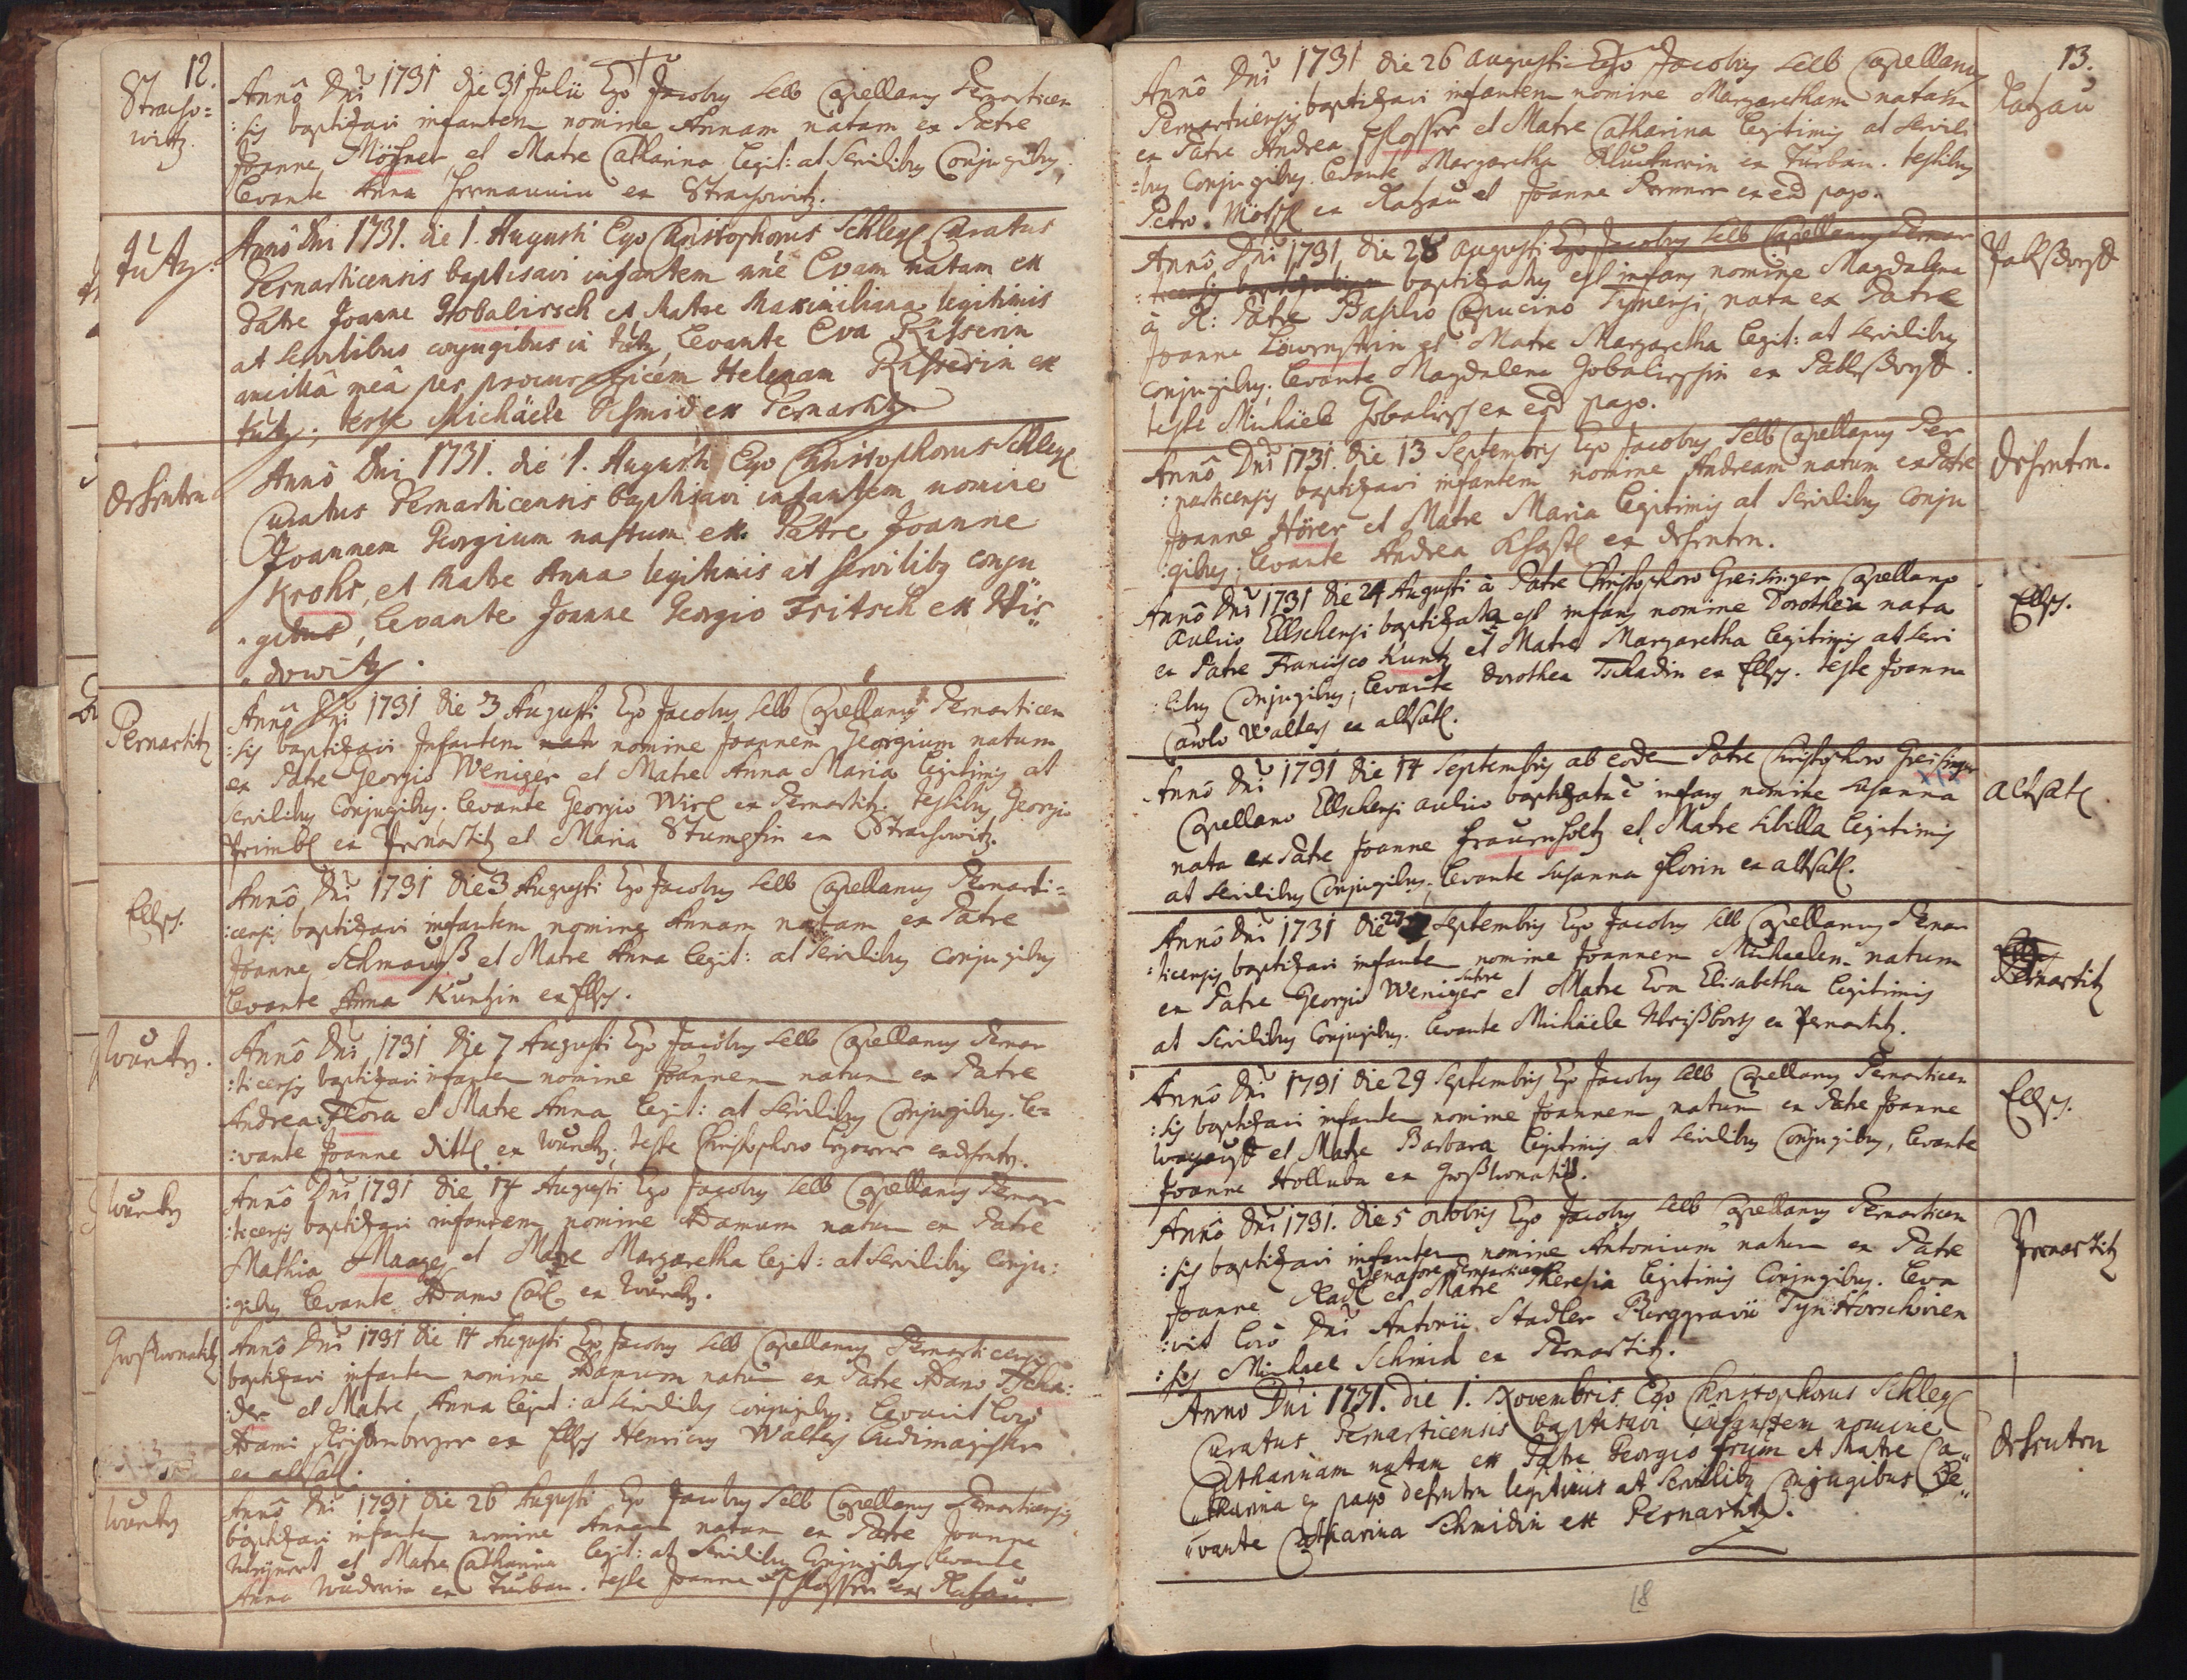 12.
Stracho=
witz.
Annô Dni 1731 die 31 Julii Ego Jacobus Selb Capellanus Pernarticen
:sis baptizavi infantem nomine Annam natam ex Patre
Joanne Mößner et Matre Catharina legit: at Servilibus Conjugibus,
levante Anna Herrmannin ex Strachowitz.
Tütz.
Annô Dni 1731. die 1. Augusti Ego Christophorus Schlegl Curatus
Pernarticensis baptisavi infantem nne Evam natam ex
Patre Joanne Hobalirsch et Matre Maximiliana legitimis
at servilibus conjugibus in tütz, levante Eva Risserin
ancillâ meâ per procuratricem Helenam Risserin ex
tütz; teste Michäele Schmid ex Pernartitz.
Annô Dni 1731. die 1. Augusti Ego Christophorus Schlegl
Curatus Pernarticensis baptisavi infantem nomine
Joannem Georgium natum ex Patre Joanne
Krohs, et Matre Anna legitimis at servilibus conju
gibus, levante Joanne Georgio Fritsch ex Wi
dowitz.
Pernartitz
Annô Dni 1731 die 3 Augusti Ego Jacobus Selb Capellanus Pernarticen
:sis baptizavi Infantem nomine Joannem Georgium natum
ex Patre Georgio Weniger et Matre Anna Maria legitimis at
servilibus Conjugibus; levante Georgio Wirl ex Pernartitz. testibus Georgio
Primbl ex Pernartitz et Maria Stumpfin ex Strachowitz.
Ellsch.
Annô Dni 1731 die 3 Augusti Ego Jacobus Selb Capellanus Pernarti=
:censis baptizavi infantem nomine Annam natam ex Patre
Joanne Schmauß et Matre Anna legit: at Servilibus conjugibus
levante Anna Kuntzin ex Ellsch.
Wurtz.
Annô Dni 1731 die 7 Augusti Ego Jacobus Selb Capellanus Pernar
:ticensis baptizavi infantem nomine Joannem natum ex Patre
Andrea Flora et Matre Anna legit: at Servilibus Conjugibus. le=
:vante Joanne Dittl ex Wurtz; teste Christophoro
Annô Dni 1731 die 14 Augusti Ego Jacobus Selb Capellanus Pernar
:ticensis baptizavi infantem nomine Adamum natum ex Patre
Mathia Maages et Matre Margaretha legit: at Servilibus Conju:
:gibus levante Adamo
Großwonetitz
Annô Dni 1731 die 14 Augusti Ego Jacobus Selb Capellanus Pernarticensis
baptizavi infantem nomine Adamum natum ex Patre Adamo Tscha:
:der et Matre Anna legit: at servilibus conjugibus. levavit loco
Adami ex Ellsch Henricus Walter ludimagister
ex altsatl.
Annô Dni 1731 die 26 Augusti Ego Jacobus Selb Capellanus Pernarticensis
baptizavi infantem nomine Annam natam ex Patre Joanne
et Matre Catharina legit: at Servilibus Conjugibus levante
Anna ex Turban. teste Joanne Schlosser ex Razau.
13.
Razau
Annô Dni 1731 die 26 Augusti Ego Jacobus Selb Capellanus
Pernarticensis baptizavi infantem nomine Margaretham natam
ex Patre Andrea Schlosser et Matre Catharina legitimis at servili
:bus Conjugibus. levante Margaretha ex Turban. testibus
Petro ex Razau et Joanne ex eod pago.
Annô Dni 1731 die 28 Augusti Ego Jacobus Selb Capellanus Pernar
:ticensis baptizatus est infans nomine Magdalena
à R: Patre Basilio Capucino Tynensi, nata ex Patre
Joanne Löwenstein et Matre Margaretha legit: at servilibus
Conjugibus; levante Magdalena Hobalirschin ex
teste Michäele Hobalirsch ex eod pago.
Annô Dni 1731. die 13 Septembris Ego Jacobus Selb Capellanus Per
:narticensis baptizavi infantem nomine Andream natum ex Patre
Joanne Hörer et Matre Maria legitimis at Servilibus Conju
:gibus; levante Andrea
Ellsch.
Annô Dni 1731 die 24 Augusti à Patre Christophoro Greisinger Capellano
Aulico Ellschensi baptizata est infans nomine Dorothea nata
ex Patre Francisco Kuntz et Matre Margaretha legitimis at servi
:libus Conjugibus; levante Dorothea Tschadin ex Ellsch. teste Joanne
Carolo Walter ex altsatl.
altsatl
Annô Dni 1731 die 14 Septembris ab eode Patre Christophoro Greisinger
Capellano Ellschensi aulico baptizata ē infans nomine Susanna
nata ex Patre Joanne Frauenholtz et Matre Sibilla legitimis
at Servilibus Conjugibus; levante Susanna Florin ex altsatl.
Pernartitz
Annô Dni 1731 die 27 Septembris Ego Jacobus Selb Capellanus Pernar
:ticensis baptizavi infantem nomine Joannem Michaelem natum
ex Patre Georgio Weniger et Matre Eva Elisabetha legitimis
at Servilibus Conjugibus. levante Michäele ex Pernartitz.
Ellsch.
Annô Dni 1731 die 29 Septembris Ego Jacobus Selb Capellanus Pernarticen
:sis baptizavi infantem nomine Joannem natum ex Patre Joanne
et Matre Barbara legitimis at Servilibus Conjugibus, levante
Joanne Holluba ex Großwonetitz.
Pernartitz
Annô Dni 1731. die 5 octobris Ego Jacobus Selb Capellanus Pernarticen
:sis baptizavi infantem nomine Antonium natum ex Patre
Joanne Radl Senatore Pernarticensi et Matre Theresia legitimis Conjugibus. leva
:vit locô Dni Antonii Stadler Burggravii Tyn Horschivien
:sis Michael Schmid ex Pernartitz.
Anno Dni 1731. die 1. Novembris Ego Christophorus Schlegl
Curatus Pernarticensis baptisavi infantem nomine
Catharinam natam ex Patre Georgio Frum et Matre Ca
tharina ex pago legitimis at servilibus Conjugibus Le
vante Catharina Schmidin ex Pernartitz.
18